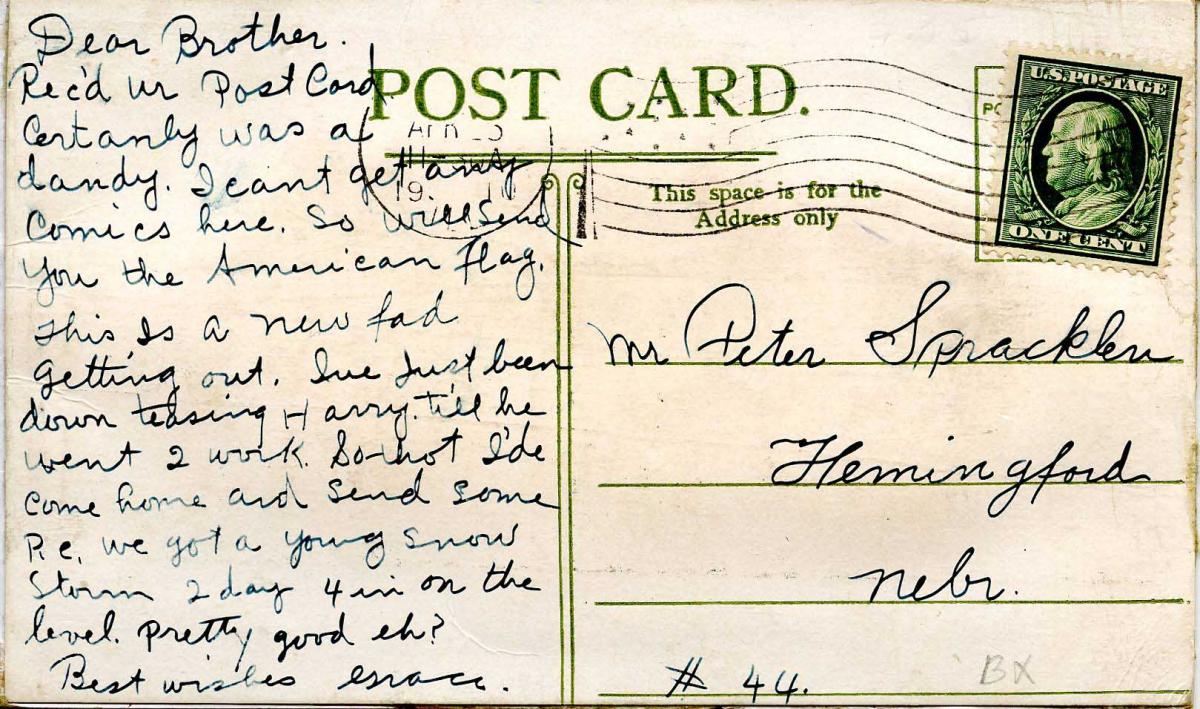 Dear Brother.
Rec'd ur Post Card
Certanly was a
dandy. I cant get any
Comics here. So will send
you the American Flag.
This Is a new fad
Getting out. Ive Just been
down teasing Harry till he
went 2 work. So thot I'de
Come home and send some
P.c. we got a young snow
Storm 2 day 4 in on the
level. Pretty good eh?
Best wishes
POST CARD.
This space is for the
Address only
U.S. POSTAGE
ONE CENT
Mr Peter Spracklen
Hemingford
Nebr.
# 44.
BX